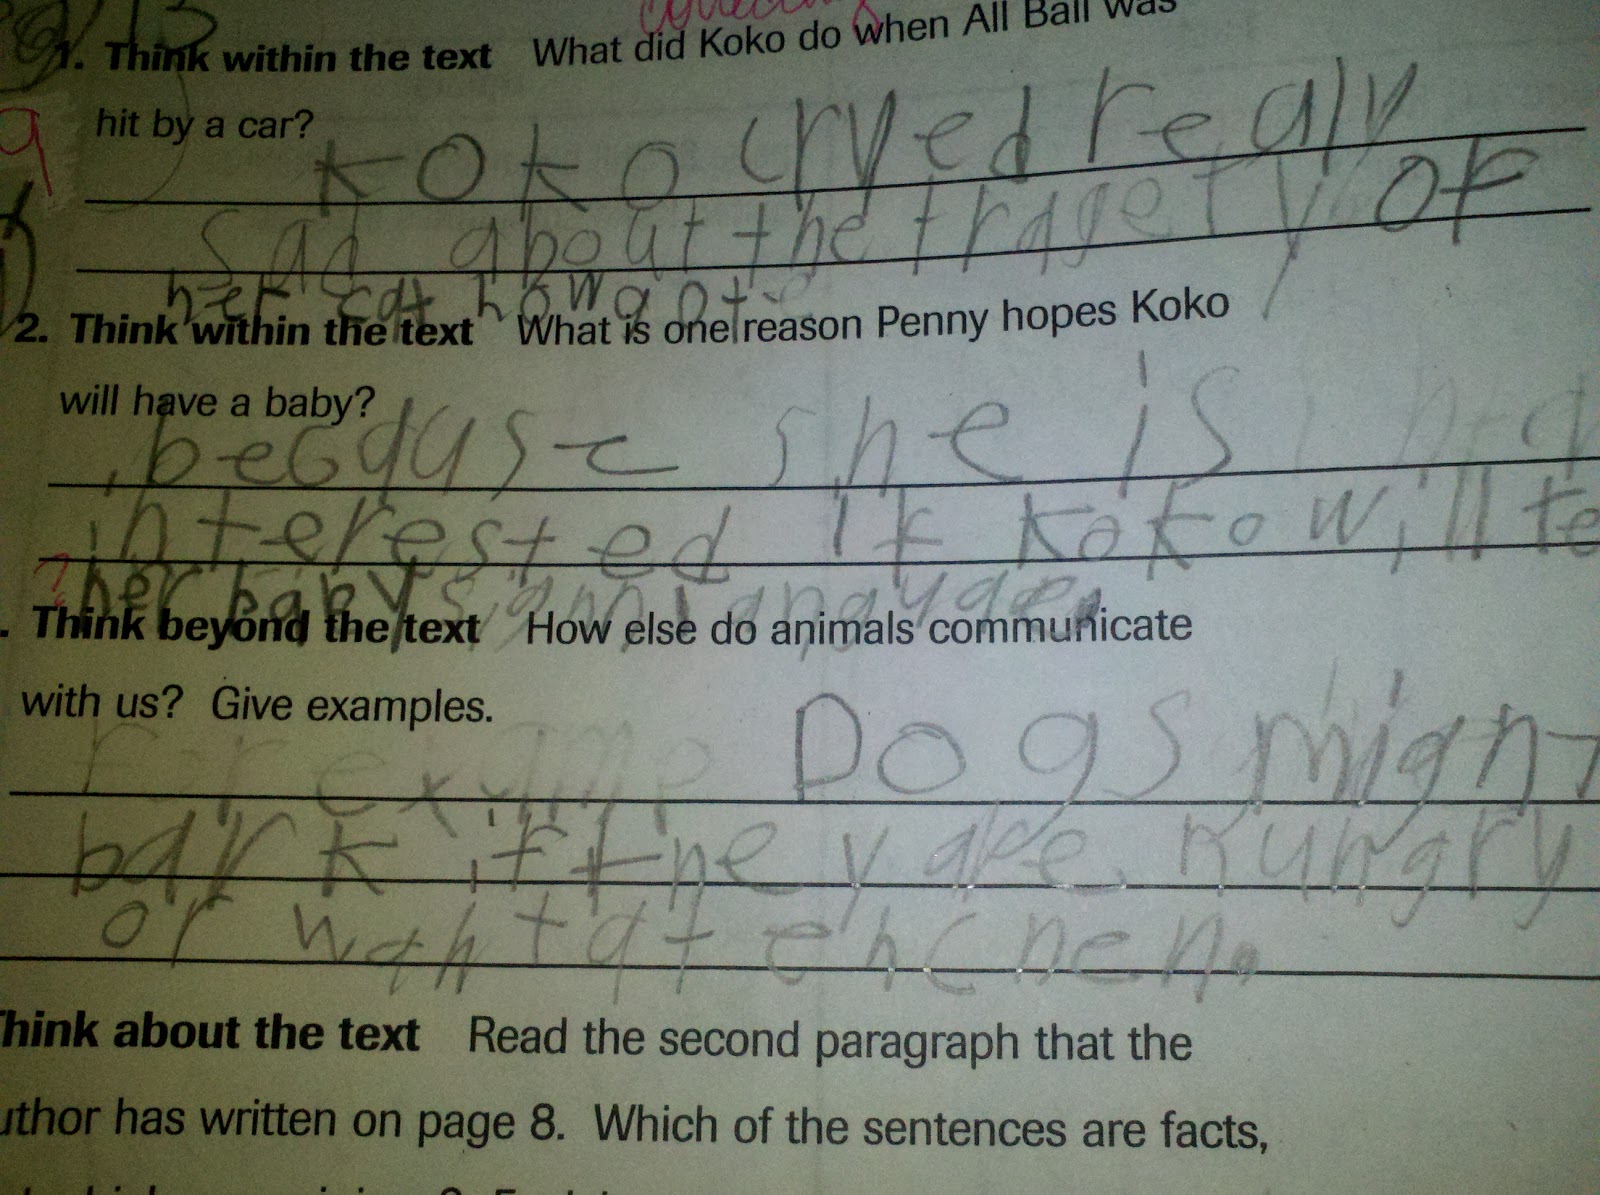 1. Think within the text What did Koko do when All Ball was
hit by a car?
koko cryed realy
sad about the tragety of
her cat how
2. Think within the text What is one reason Penny hopes Koko
will have a baby?
becquse she is
interested if koko will te
her baby
. Think beyond the text How else do animals communicate
with us? Give examples.
For examp Dogs might
bark if they are hungry
or
Think about the text Read the second paragraph that the
uthor has written on page 8. Which of the sentences are facts,